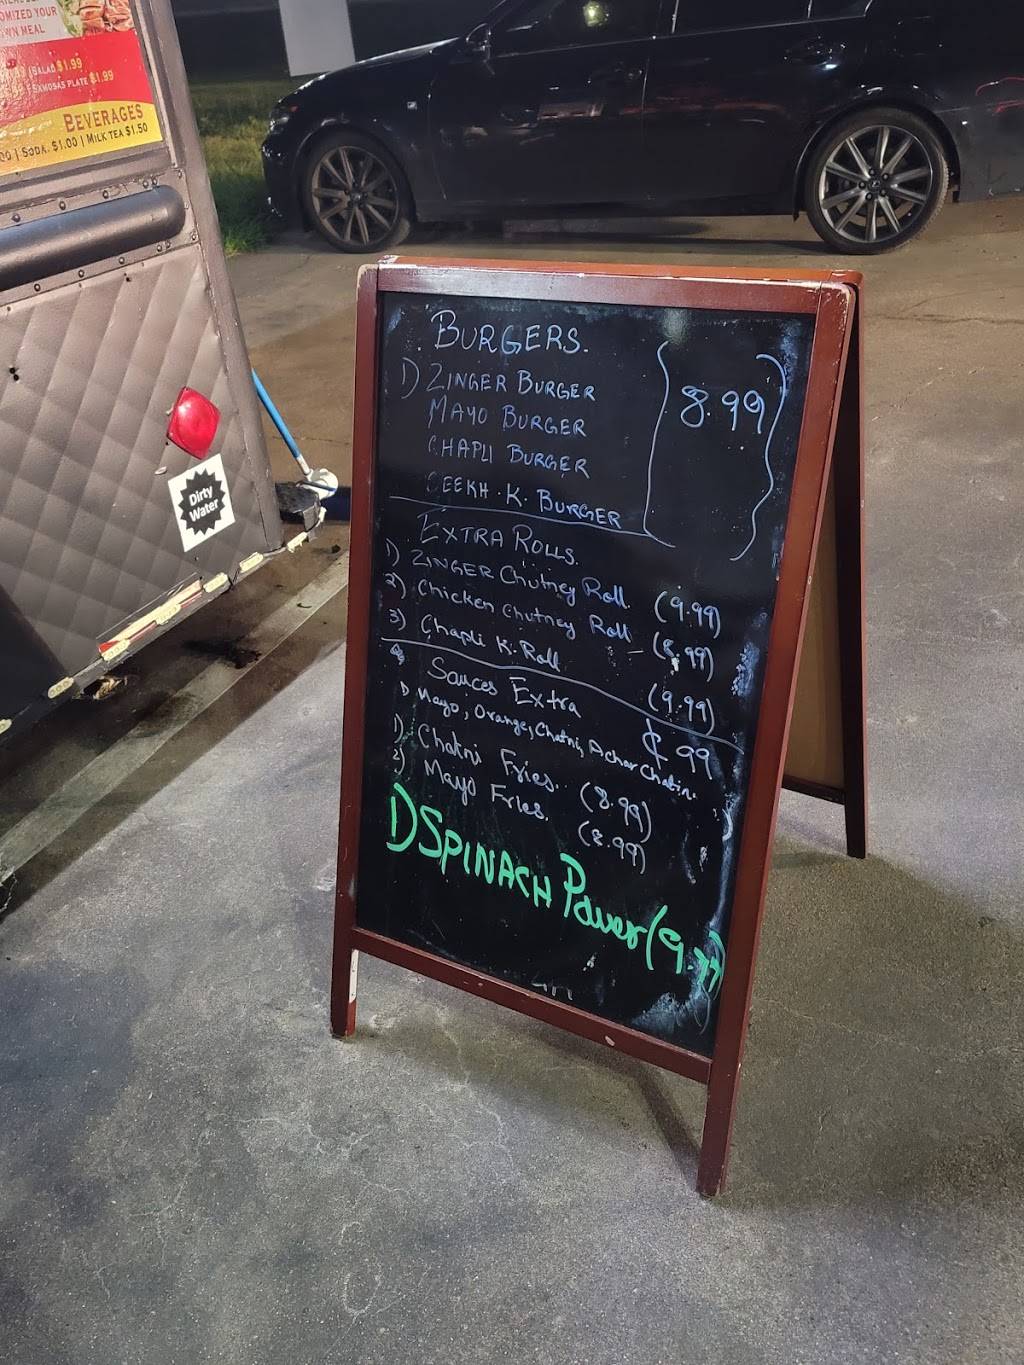 OMIZED YOUR
WN MEAL
SALAD $1.99
SAMOSAS PLATE $1.99
BEVERAGES
00 | SODA. $1.00 | MILK TEA $1.50
Dirty
Water
BURGERS.
1) ZINGER BURGER
MAYO BURGER
CHAPLI BURGER
SEEKH.K. BURGER
8.99
EXTRA ROLLS.
1) ZINGER Chutney Roll (9.99)
2) Chicken Chutney Roll - (8.99)
3) Chapli K.Roll (9.99)
Sauces Extra ¢ 99
1) Mayo, Orange, Chatni, Achar Chatin.
1) Chatni Fries. (8.99)
2) Mayo Fries. (8.99)
1) SPINACH Pawer (9.99)